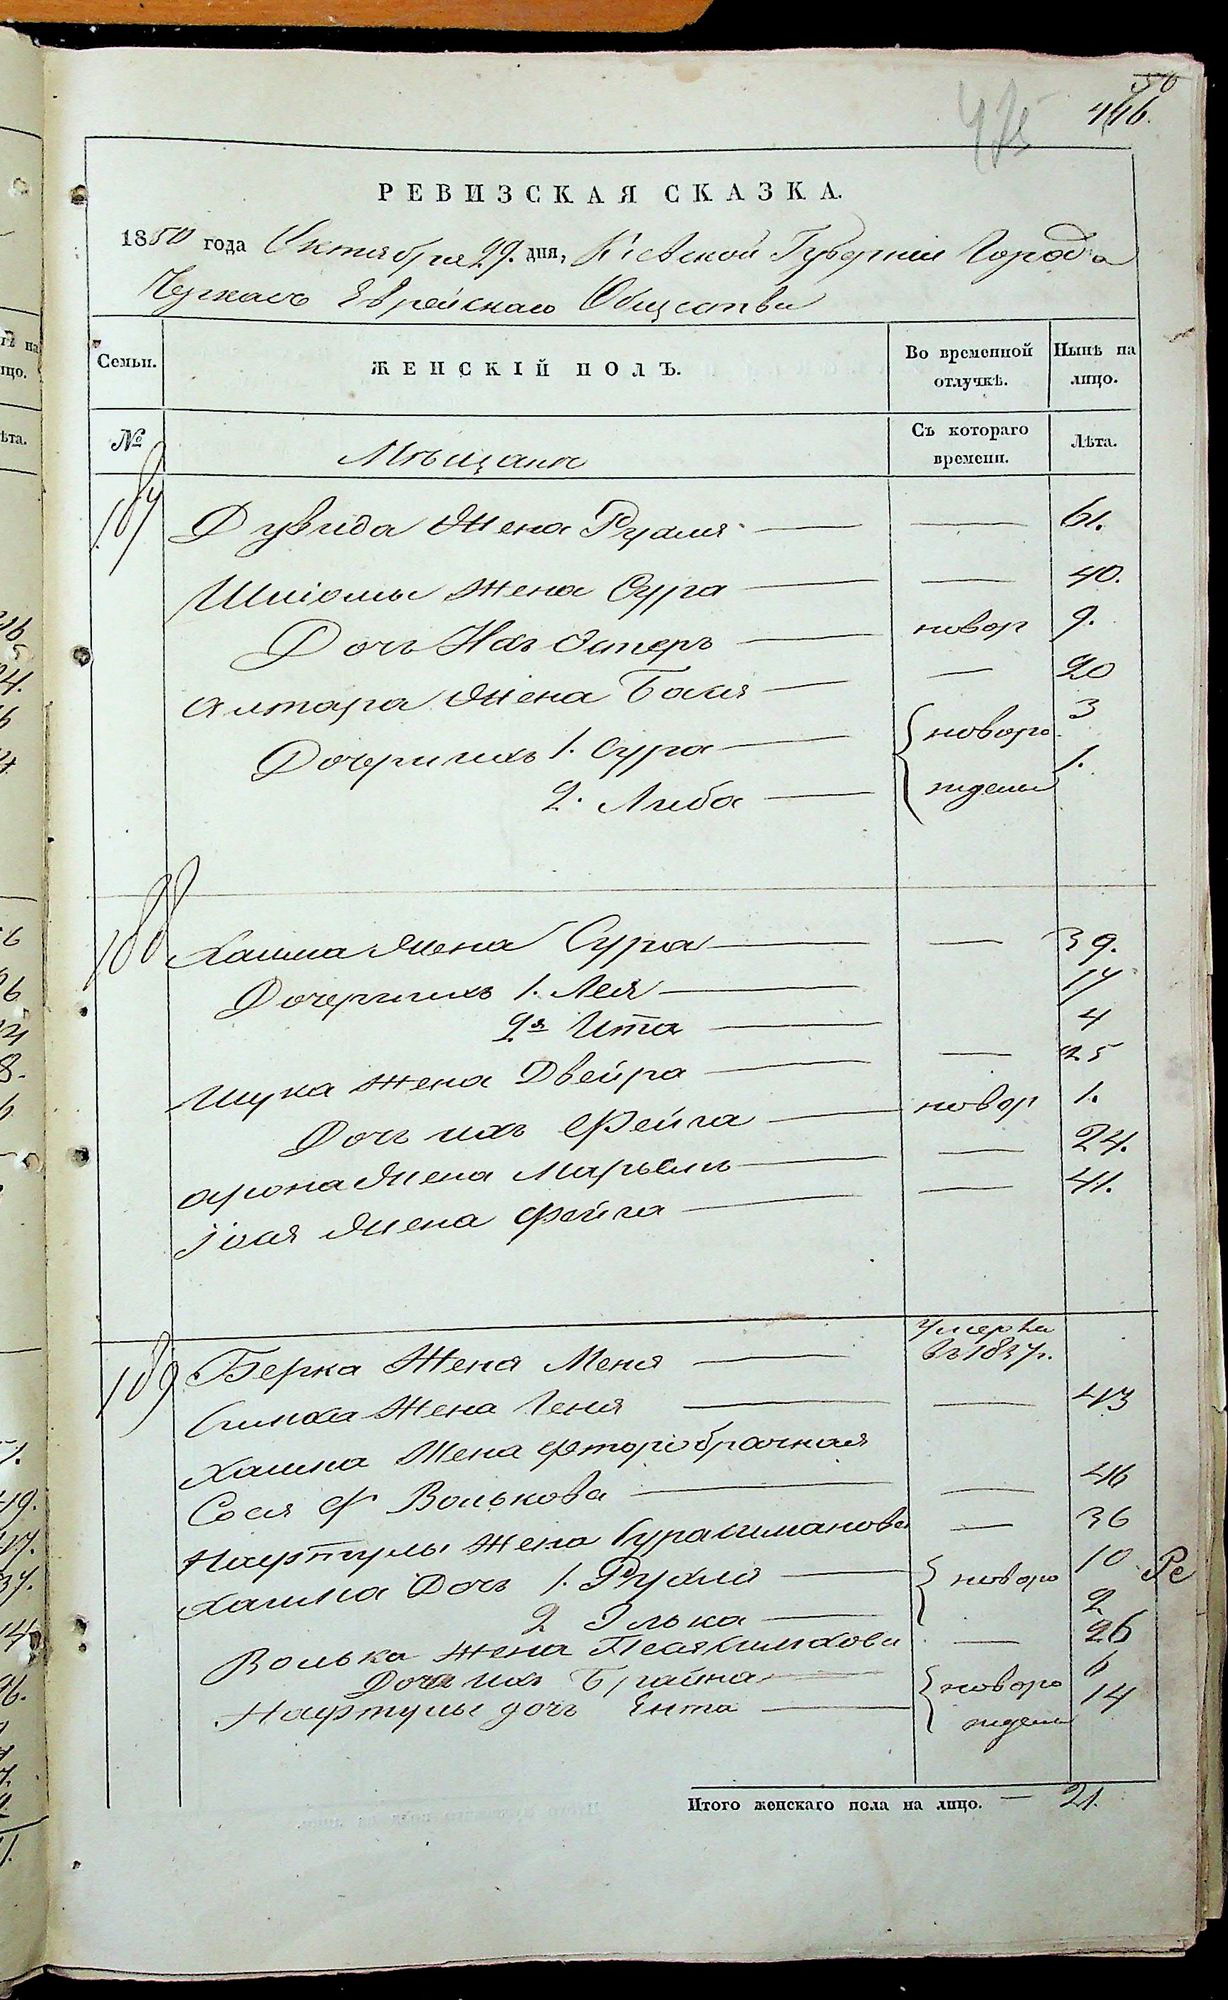 50
446.
475
РЕВИЗСКАЯ СКАЗКА.
1850 года Октября 29. дня, Кіевской Губерніи Города
Черкасъ Еврейскаго Общества
Семьи.
ЖЕНСКІЙ ПОЛЪ.
Во временной отлучкѣ.
Нынѣ на лицо.
№
Мѣщане
Съ котораго времени.
Лѣта.
187 Дувида Жена Рухля — — 61.
Шліомы Жена Сура — — 40.
Дочь Ихъ Эстеръ — новор 9.
Алтара Жена Бася — — 20
Дочери ихъ 1. Сура — новоро 3
2. Либа — ждены 1.
188 Хаима Жена Сура — — 39.
Дочери ихъ 1. Лея — 17
2я Ита — 4
Ицка Жена Двейра — — 25
Дочь ихъ Фейга — новор 1.
Арона Жена Марьемъ — — 24.
Жена Фейга — — 41.
189 Берка Жена Меня — Умерла въ 1837г.
Симха Жена Геня — — 43
Хаима Жена фторобрачная
Сося Волькова — — 46
Нафтулы Жена Сура Симахова — 36
Хаима Дочь 1. Рухля — новоро 10 Ре
2 Элька — 2
Волька Жена Песя Симхова — 26
Дочь ихъ Брайна — новоро 6
Нафтулы дочь Ента — ждены 14
Итого женскаго пола на лицо. — 21.